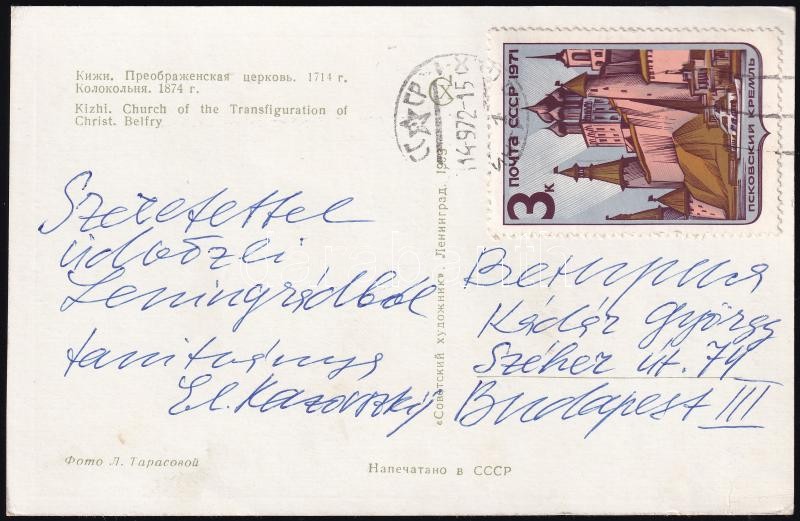 Кижи. Преображенская церковь. 1714 г.
Колокольня. 1874 г.
Kizhi. Church of the Transfiguration of
Christ. Belfry
Szeretettel
üdvözli
Leningrádból
tanítványa
El. Kazovszkij
Фото Л. Тарасовой
Напечатано в СССР
«Советский художник». Ленинград.
СССР
14 9 72-15
ПОЧТА СССР 1971
3к
ПСКОВСКИЙ КРЕМЛЬ
Венгрия
Kádár György
Széher út. 74
Budapest III